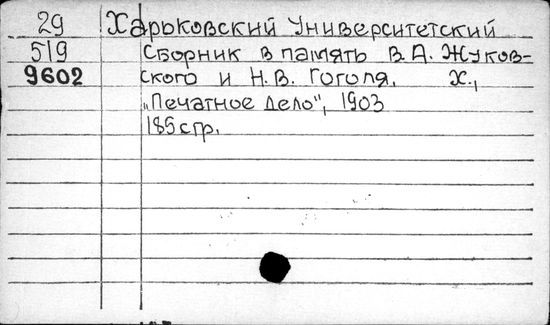 29 Харьковский Университетский
519 Сборник в память В.А. Жуков-
9602 ского и Н.В. Гоголя. Х.,
„Печатное дело", 1903
185 стр.